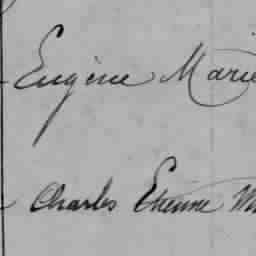 Eugène Marie
Charles Etienne